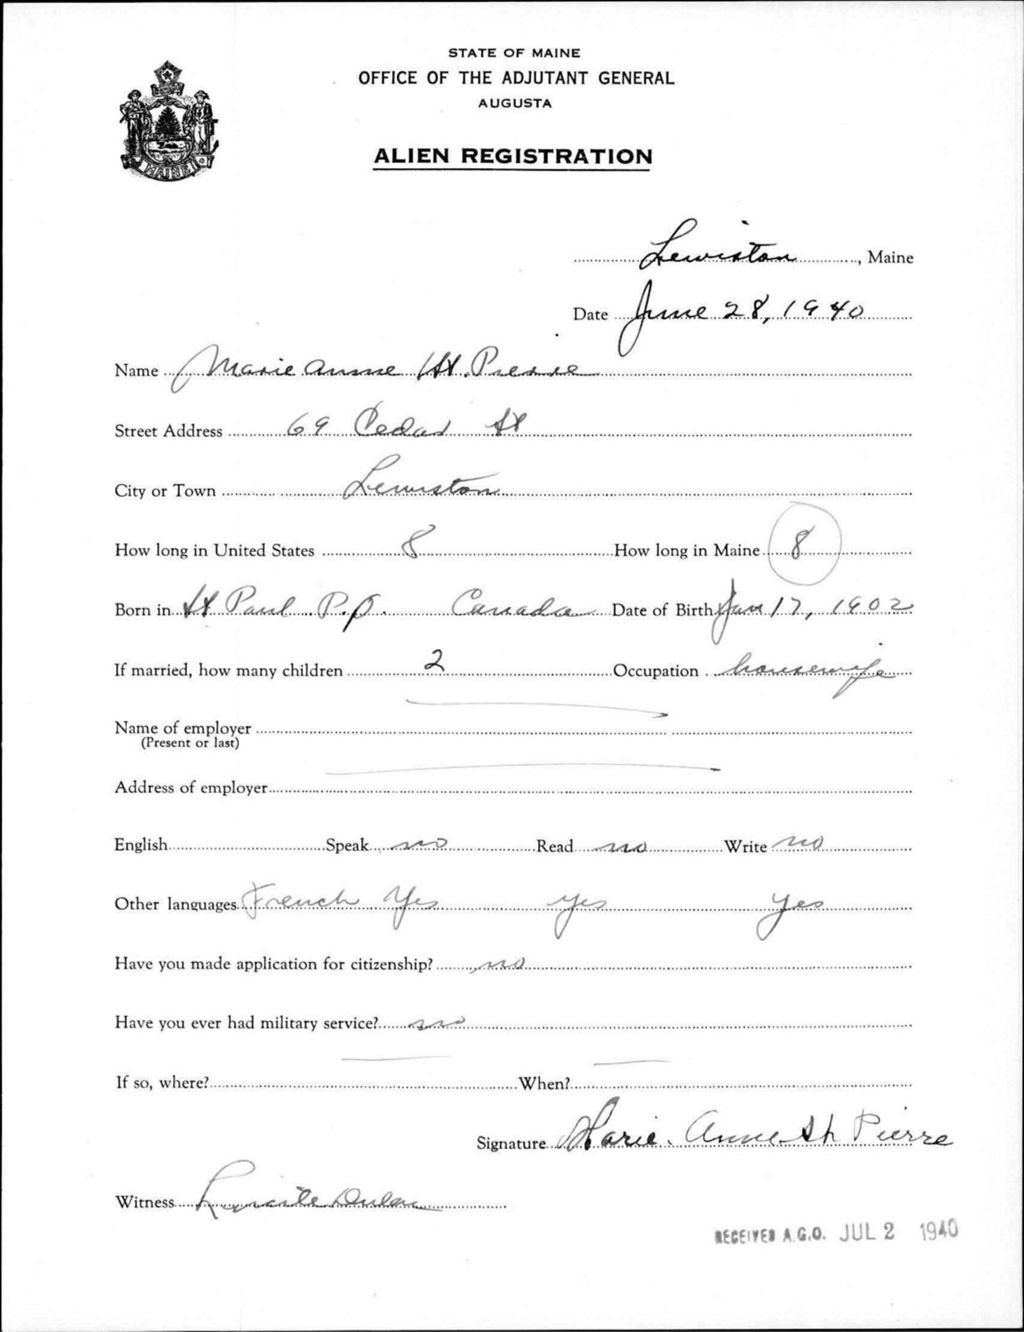 STATE OF MAINE
OFFICE OF THE ADJUTANT GENERAL
AUGUSTA
ALIEN REGISTRATION
MAINE
Lewiston, Maine
Date June 28, 1940
Name Marie Anne St. Pierre
Street Address 69 Cedar St
City or Town Lewiston
How long in United States 8 How long in Maine 8
Born in St Paul P.Q. Canada Date of Birth Jan 17, 1902
If married, how many children 2 Occupation housewife
Name of employer
(Present or last)
Address of employer
English Speak no Read no Write no
Other languages French Yes yes yes
Have you made application for citizenship? no
Have you ever had military service? no
If so, where? When?
Signature Marie-Anne St Pierre
Witness
RECEIVED A.G.O. JUL 2 1940